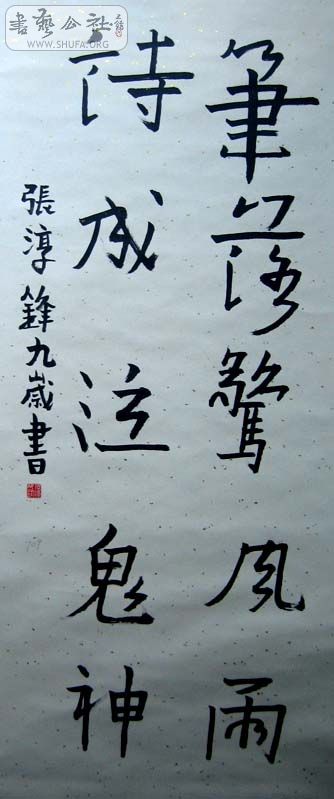 筆落驚風雨
詩成泣鬼神
張淳鋒九歲書
書藝公社
WWW.SHUFA.ORG